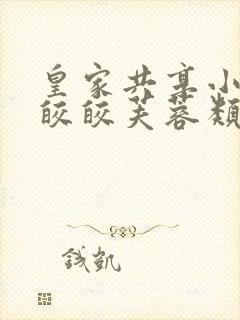 皇家共享小
皎皎芙蓉類
钱凯